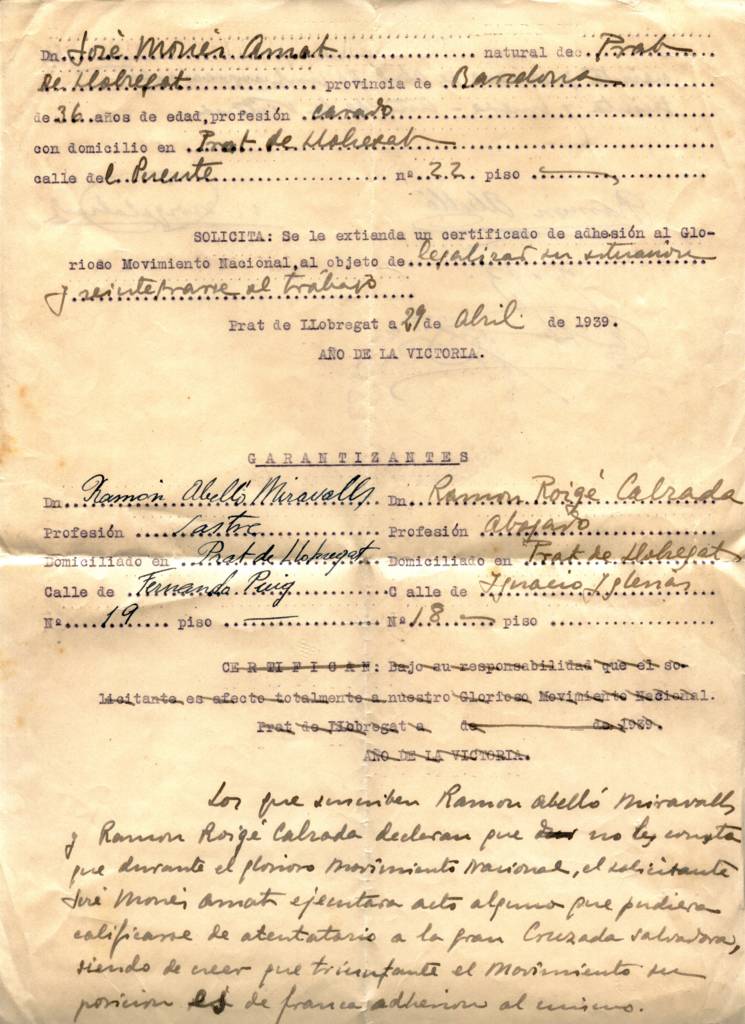 Dn. José Monés Amat natural de: Prat
de Llobregat provincia de Barcelona
de 36 años de edad, profesión casado
con domicilio en Prat de Llobregat
calle del Puente nº 22 piso —
SOLICITA: Se le extienda un certificado de adhesión al Glo-
rioso Movimiento Nacional, al objeto de legalizar su situación
y reintegrarse al trabajo
Prat de LLobregat a 29 de Abril de 1939.
AÑO DE LA VICTORIA.
GARANTIZANTES
Dn. Ramón Abelló Miravalls Dn. Ramon Roigé Calzada
Profesión Sastre Profesión Abogado
Domiciliado en Prat de Llobregat Domiciliado en Prat de Llobregat
Calle de Fernando Puig Calle de Ignacio Iglesias
Nº 19 piso — Nº 18 — piso
CERTIFICAN: Bajo su responsabilidad que el so-
licitante, es afecto totalmente a nuestro Glorioso Movimiento Nacional.
Prat de LLobregat a de de 1939.
AÑO DE LA VICTORIA.
Los que suscriben Ramon Abelló Miravalls
y Ramon Roigé Calzada declaran que no les consta
que durante el glorioso Movimiento Nacional, el solicitante
José Monés Amat ejecutara acto alguno que pudiera
calificarse de atentatorio a la gran Cruzada salvadora,
siendo de creer que triunfante el Movimiento su
posicion es de franca adhesion al mismo.